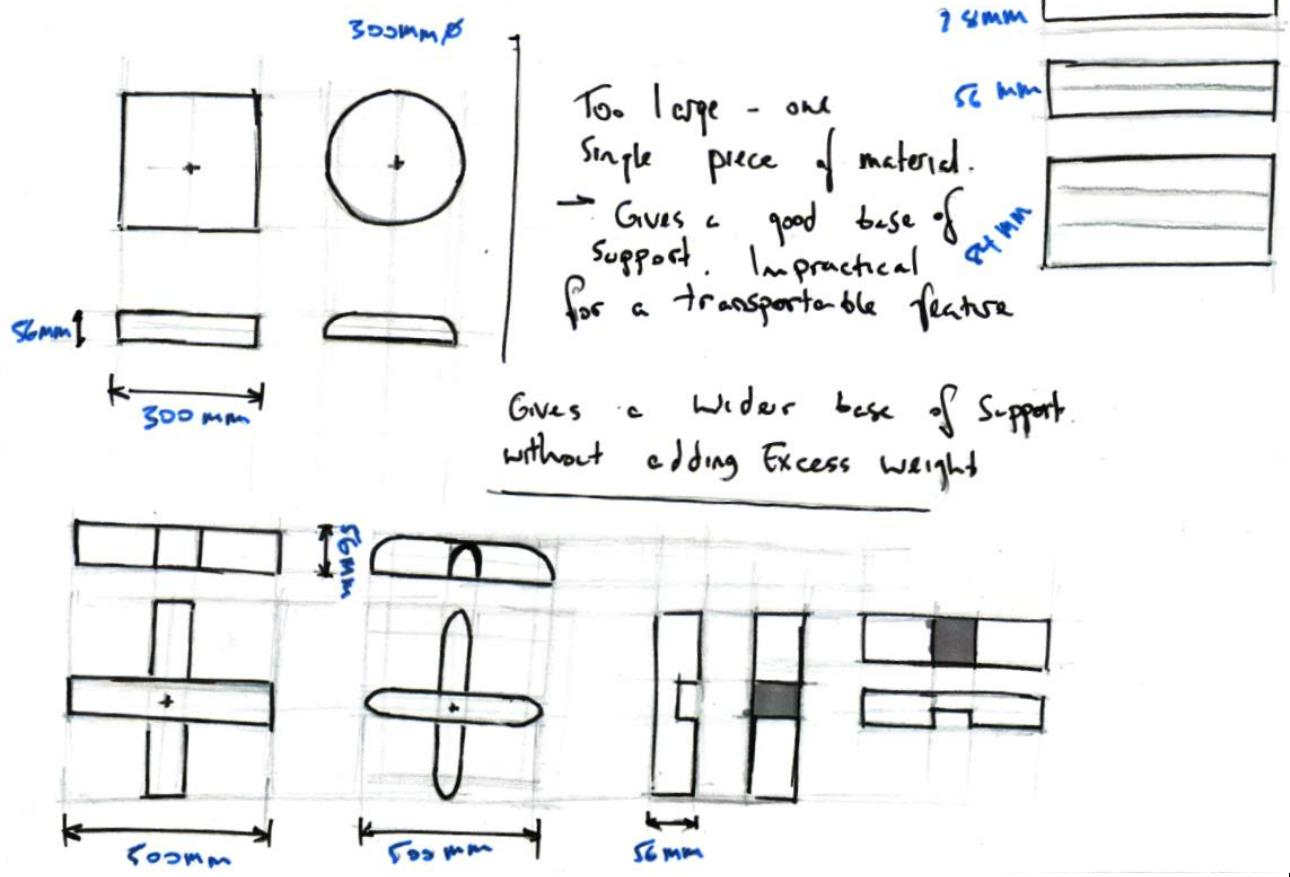 300mmø
28mm
56 mm
84 mm
Too large - one
single piece of material.
→ Gives a good base of
support. Impractical
for a transportable feature
56mm
300 mm
Gives a wider base of Support.
without adding Excess weight
56mm
500mm
500 mm
56 mm